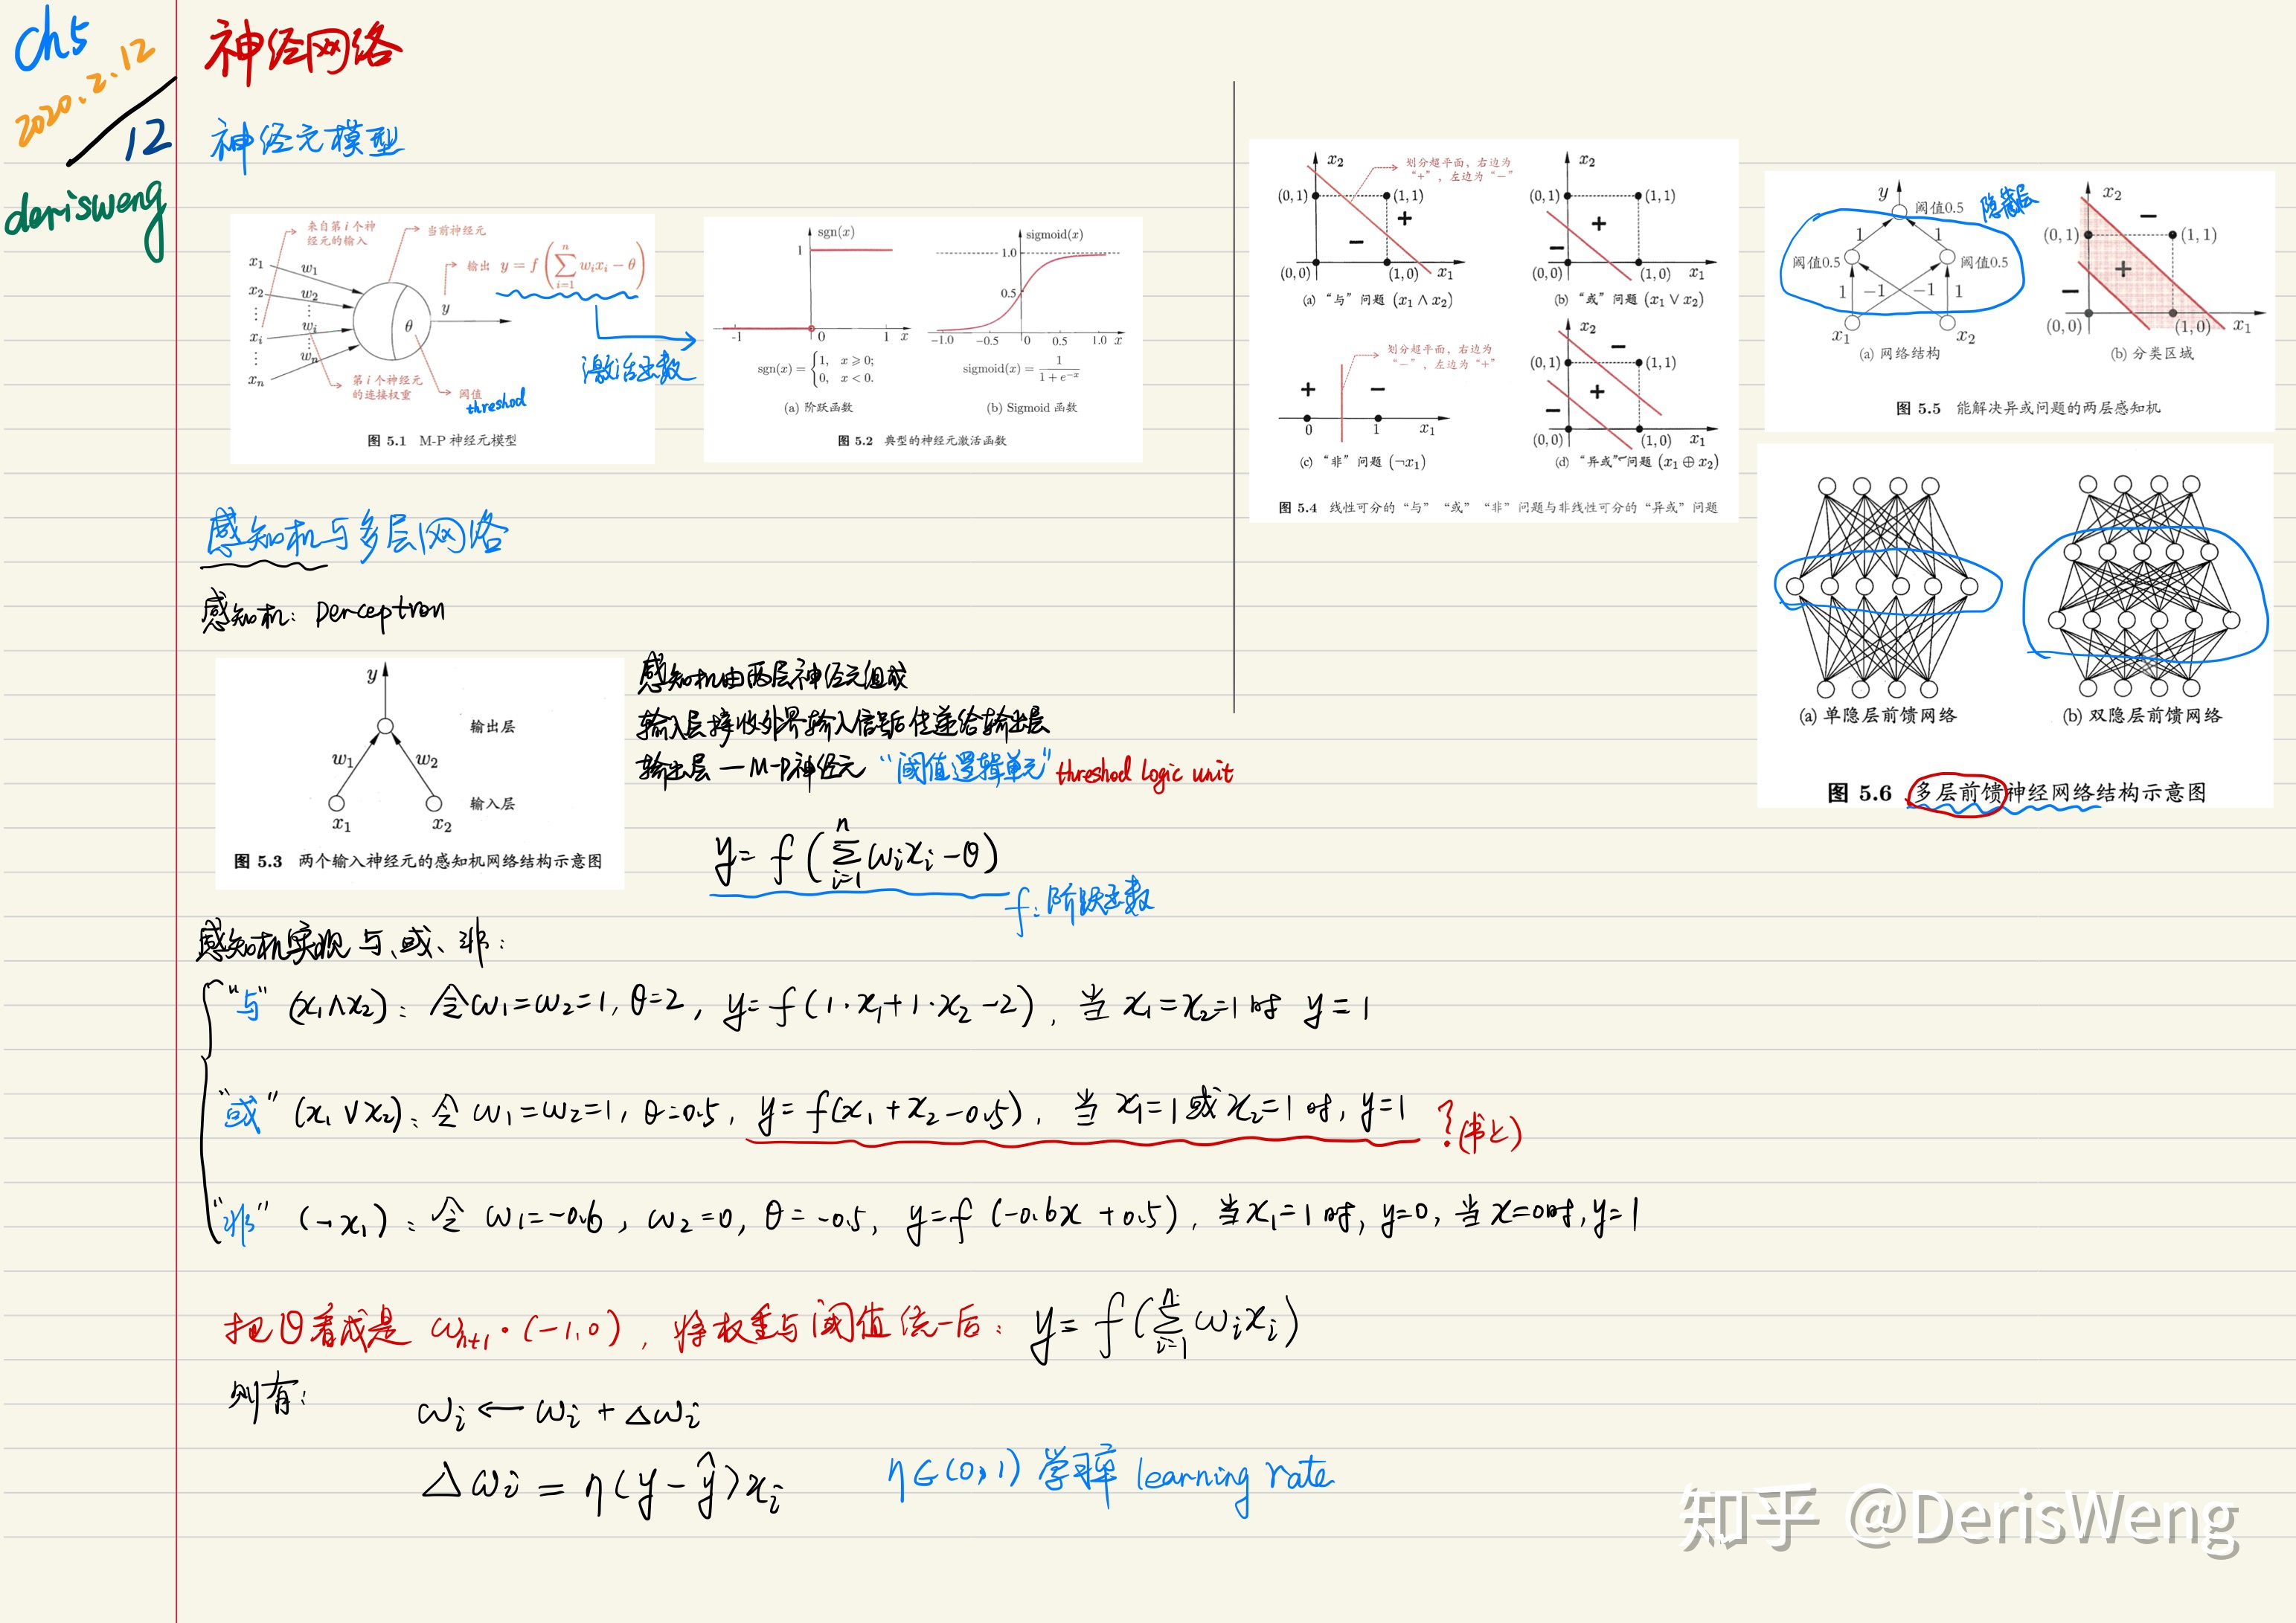 ch5
2020.2.12
12
derisweng
神经网络
神经元模型
来自第 i 个神
经元的输入
当前神经元
输出 y = f(∑ⁿᵢ₌₁ wᵢxᵢ − θ)
x₁
x₂
⋮
xᵢ
⋮
xₙ
w₁
w₂
⋮
wᵢ
⋮
wₙ
θ
y
第 i 个神经元
的连接权重
阈值
threshod
图 5.1 M-P 神经元模型
激活函数
sgn(x)
1
-1
0
1
x
sgn(x) = {1, x ⩾ 0;
0, x < 0.
(a) 阶跃函数
sigmoid(x)
1.0
0.5
−1.0 −0.5 0 0.5 1.0 x
sigmoid(x) = 1/(1 + e⁻ˣ)
(b) Sigmoid 函数
图 5.2 典型的神经元激活函数
感知机与多层网络
感知机: perceptron
y
输出层
w₁ w₂
输入层
x₁ x₂
图 5.3 两个输入神经元的感知机网络结构示意图
感知机由两层神经元组成
输入层接收外界输入信号后传递给输出层
输出层 — M-P神经元 “阈值逻辑单元” threshod logic unit
y = f(∑ⁿᵢ₌₁ ωᵢxᵢ − θ)
f: 阶跃函数
感知机实现 与、或、非:
“与” (x₁∧x₂): 令ω₁=ω₂=1, θ=2, y=f(1·x₁+1·x₂−2), 当 x₁=x₂=1时 y=1
“或” (x₁∨x₂): 令 ω₁=ω₂=1, θ=0.5, y=f(x₁+x₂−0.5), 当 x₁=1或x₂=1时, y=1 ? (书上)
“非” (¬x₁): 令 ω₁=−0.6, ω₂=0, θ=−0.5, y=f(−0.6x+0.5), 当x₁=1时, y=0, 当x=0时, y=1
把θ看成是 ωₙ₊₁·(−1.0), 将权重与阈值统一后: y=f(∑ⁿᵢ₌₁ ωᵢxᵢ)
则有:
ωᵢ ← ωᵢ + Δωᵢ
Δωᵢ = η(y−ŷ)xᵢ
η∈(0,1) 学习率 learning rate
x₂
划分超平面, 右边为
“+”, 左边为“−”
(0,1)
(1,1)
+
−
(0,0)
(1,0)
x₁
(a) “与”问题 (x₁ ∧ x₂)
x₂
(0,1)
(1,1)
+
−
(0,0)
(1,0)
x₁
(b) “或”问题 (x₁ ∨ x₂)
划分超平面, 右边为
“−”, 左边为“+”
+
−
0
1
x₁
(c) “非”问题 (¬x₁)
x₂
−
(0,1)
(1,1)
+
−
(0,0)
(1,0)
x₁
(d) “异或”问题 (x₁ ⊕ x₂)
图 5.4 线性可分的“与”“或”“非”问题与非线性可分的“异或”问题
y
阈值0.5
隐藏层
1 1
阈值0.5
阈值0.5
1 −1 −1 1
x₁ x₂
(a) 网络结构
x₂
−
(0,1)
(1,1)
+
−
(0,0)
(1,0)
x₁
(b) 分类区域
图 5.5 能解决异或问题的两层感知机
(a) 单隐层前馈网络
(b) 双隐层前馈网络
图 5.6 多层前馈神经网络结构示意图
知乎 @DerisWeng